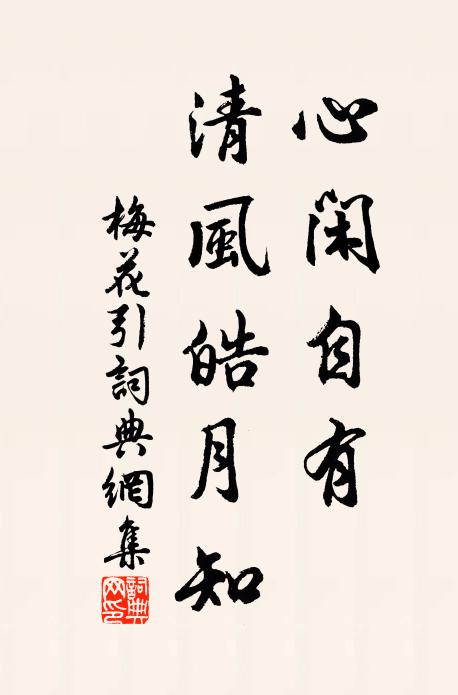 心閑自有
清風皓月知
梅花引詞典網集
詞典網印